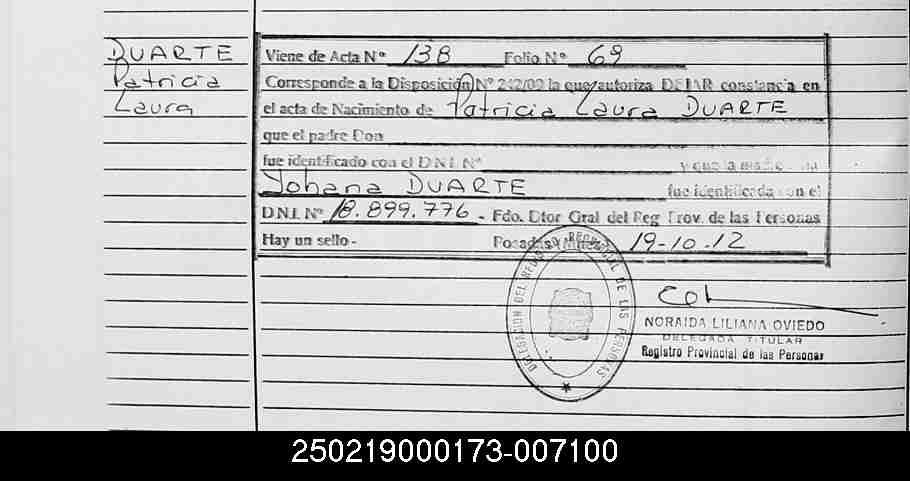 DUARTE
Patricia
Laura
Viene de Acta Nº 138 Folio Nº 69
Corresponde a la Disposición Nº 242/02 la que autoriza DEJAR constancia en
el acta de Nacimiento de Patricia Laura DUARTE
que el padre Don
fue identificado con el D.N.I. Nº y que la madre
Johana DUARTE fue identificada con el
D.N.I. Nº 18.899.776 - Fdo. Dtor Gral del Reg Prov. de las Personas
Hay un sello - Posadas 19-10-12
DELEGACION DEL REGISTRO DE LAS PERSONAS
NORAIDA LILIANA OVIEDO
DELEGADA TITULAR
Registro Provincial de las Personas
250219000173-007100